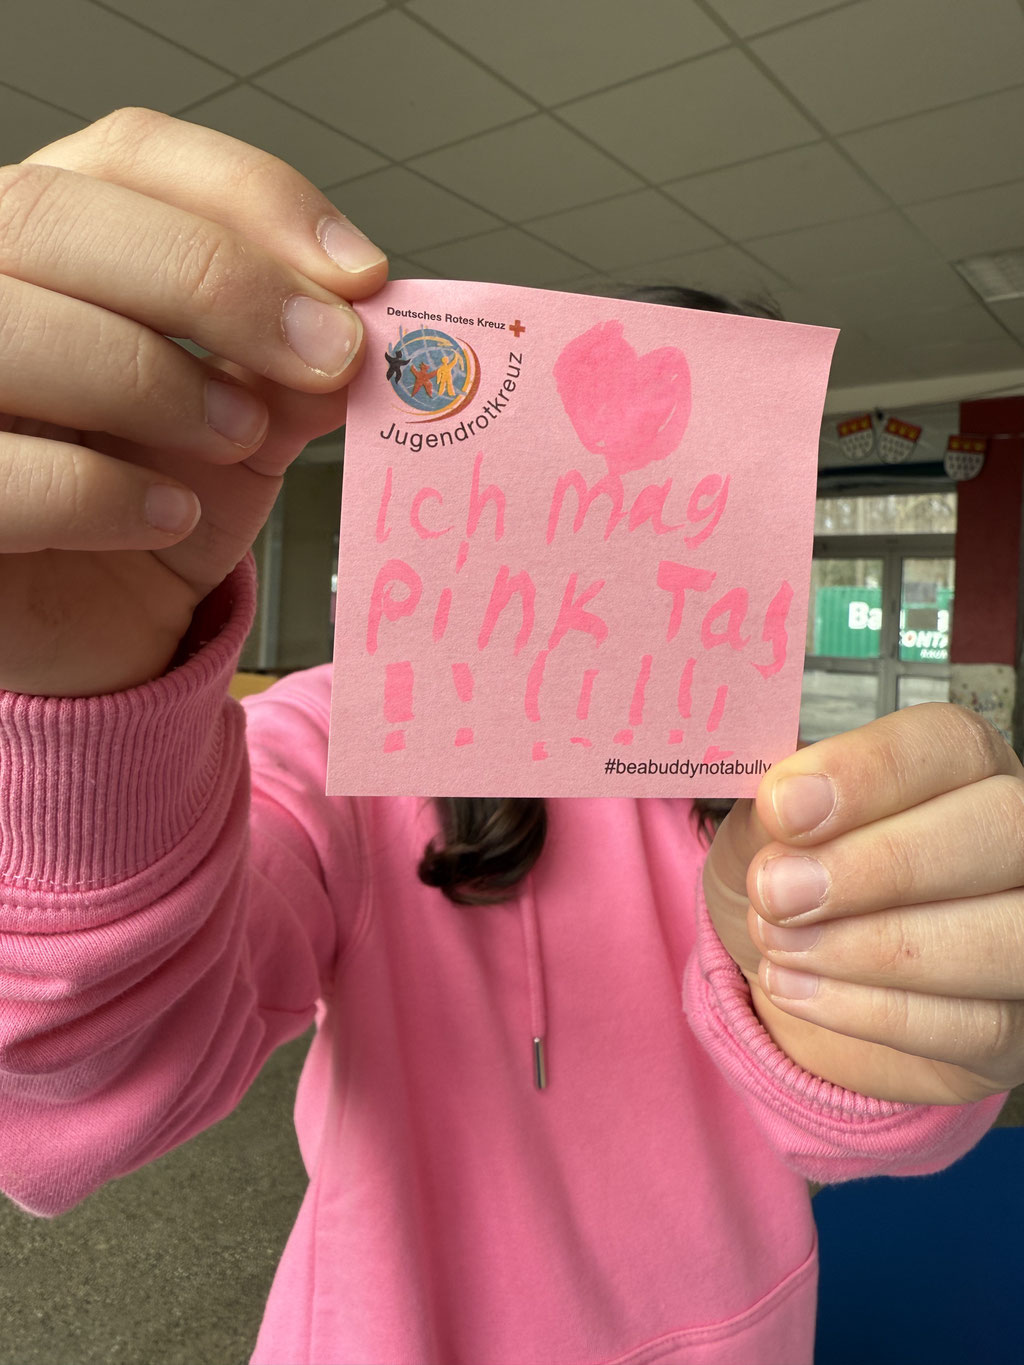 Deutsches Rotes Kreuz
Jugendrotkreuz
Ich mag
Pink Tag
!!!!!!!
#beabuddynotabully